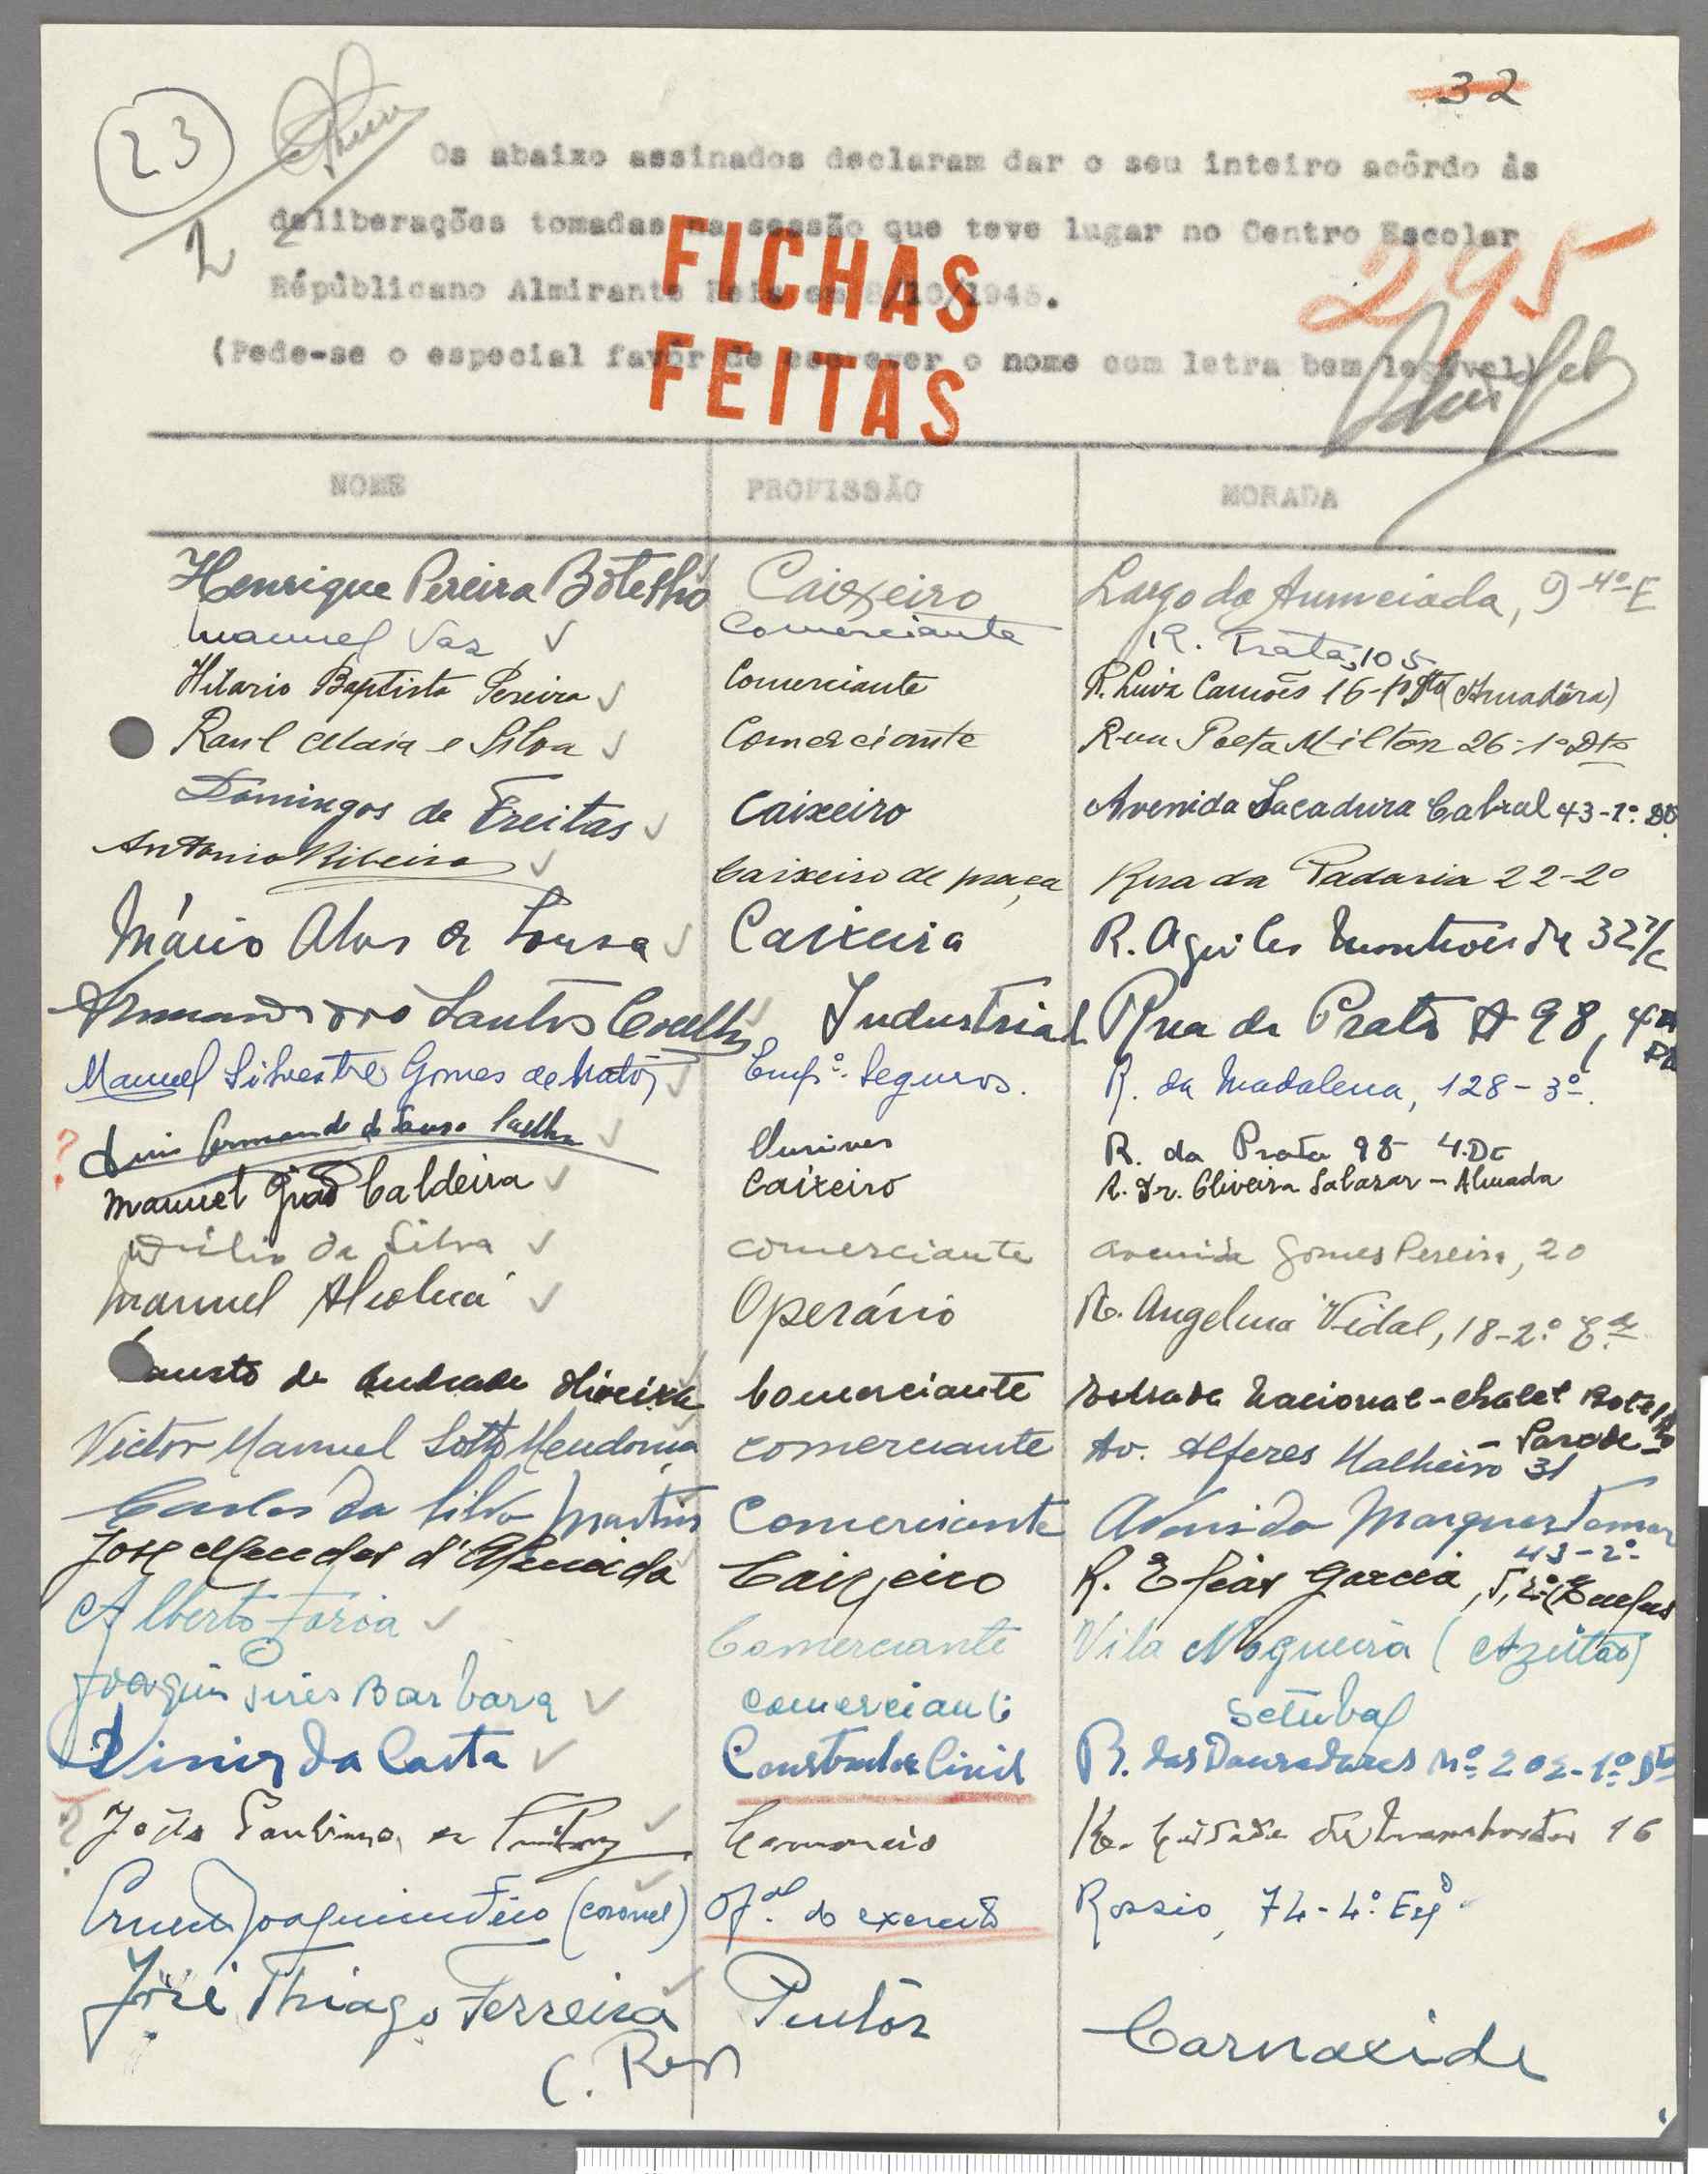 32
23
2
Os abaixo assinados declaram dar o seu inteiro acôrdo às
deliberações tomadas na sessão que teve lugar no Centro Escolar
Républicano Almirante Reis em 8/10/1945.
(Pede-se o especial favôr de escrever o nome com letra bem legível)
FICHAS
FEITAS
295
NOME PROFISSÃO MORADA
Henrique Pereira Botelho Caixeiro Largo da Anunciada, 9-4º-E
Manuel Vaz Comerciante R. Prata, 105
Hilario Baptista Pereira Comerciante R. Luiz Camões 16-1º Dto (Amadôra)
Raul Maia e Silva Comerciante Rua Poeta Milton 26-1º Dto
Domingos de Freitas Caixeiro Avenida Sacadura Cabral 43-1º. Dto
Antonio Ribeiro Caixeiro de praça Rua da Padaria 22-2º
Mário Alves de Sousa Caixeiro R. Aquiles 32 r/c
Armando dos Santos Coelho Industrial Rua da Prata 98, 4º
Manuel Silvestre Gomes de Matos Empº. Seguros. R. da Madalena, 128-3º.
Luis Armando de Sousa Coelho Ourives R. da Prata 98 4.Dt
Manuel Grão Caldeira Caixeiro R. Dr. Oliveira Salazar - Almada
da Silva comerciante Avenida Gomes Pereira, 20
Manuel Operário R. Angelina Vidal, 18-2.º E
Fausto de Andrade Oliveira Comerciante Estrada Nacional-chalet
Victor Manuel Sotto Mendonça comerciante Av. Alferes Malheiro 31
Carlos da Silva Martins Comerciante Avenida Marques Tomar
43-2º
José Mendes d'Almeida Caixeiro R. Elias Garcia, 5, 2º
Alberto Faria Comerciante Vila Nogueira (Azeitão)
Joaquim Pires Barbara comerciante Setubal
Diniz da Costa Constructor Civil R. dos Douradores Nº 202-1º Dto
João de 16
Joaquim (coronel) Of.al do exercito Rossio, 74-4º. Esqº
José Thiago Ferreira Pintôr Carnaxide